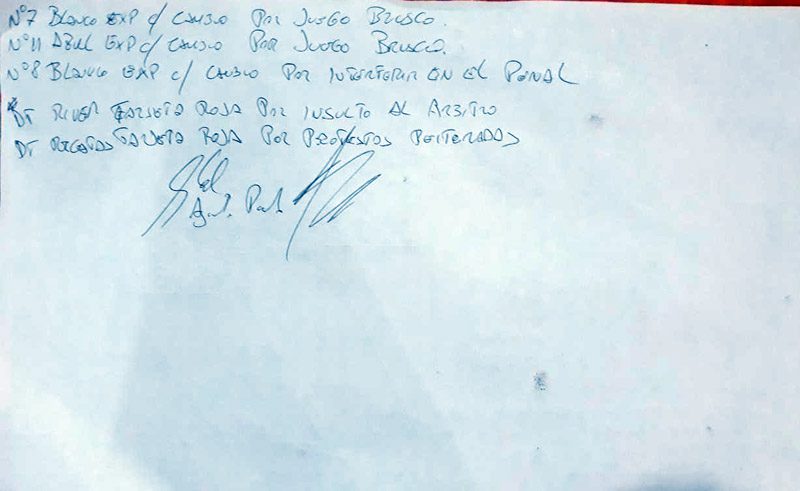 Nº7 BLANCO EXP c/ CAMBIO POR JUEGO BRUSCO.
Nº11 AZUL EXP c/ CAMBIO POR JUEGO BRUSCO.
Nº8 BLANCO EXP c/ CAMBIO POR INTERFERIR EN EL PENAL
DT RIVER TARJETA ROJA POR INSULTO AL ARBITRO
DT REGATAS TARJETA ROJA POR PROTESTAS REITERADAS